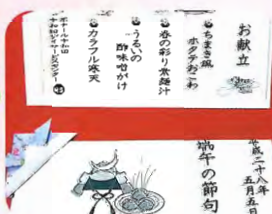 お献立
ちまき風
ホタテおこわ
春の彩り煮麺汁
うるいの
酢味噌がけ
カラフル寒天
平成二十八年
五月五日
端午の節句